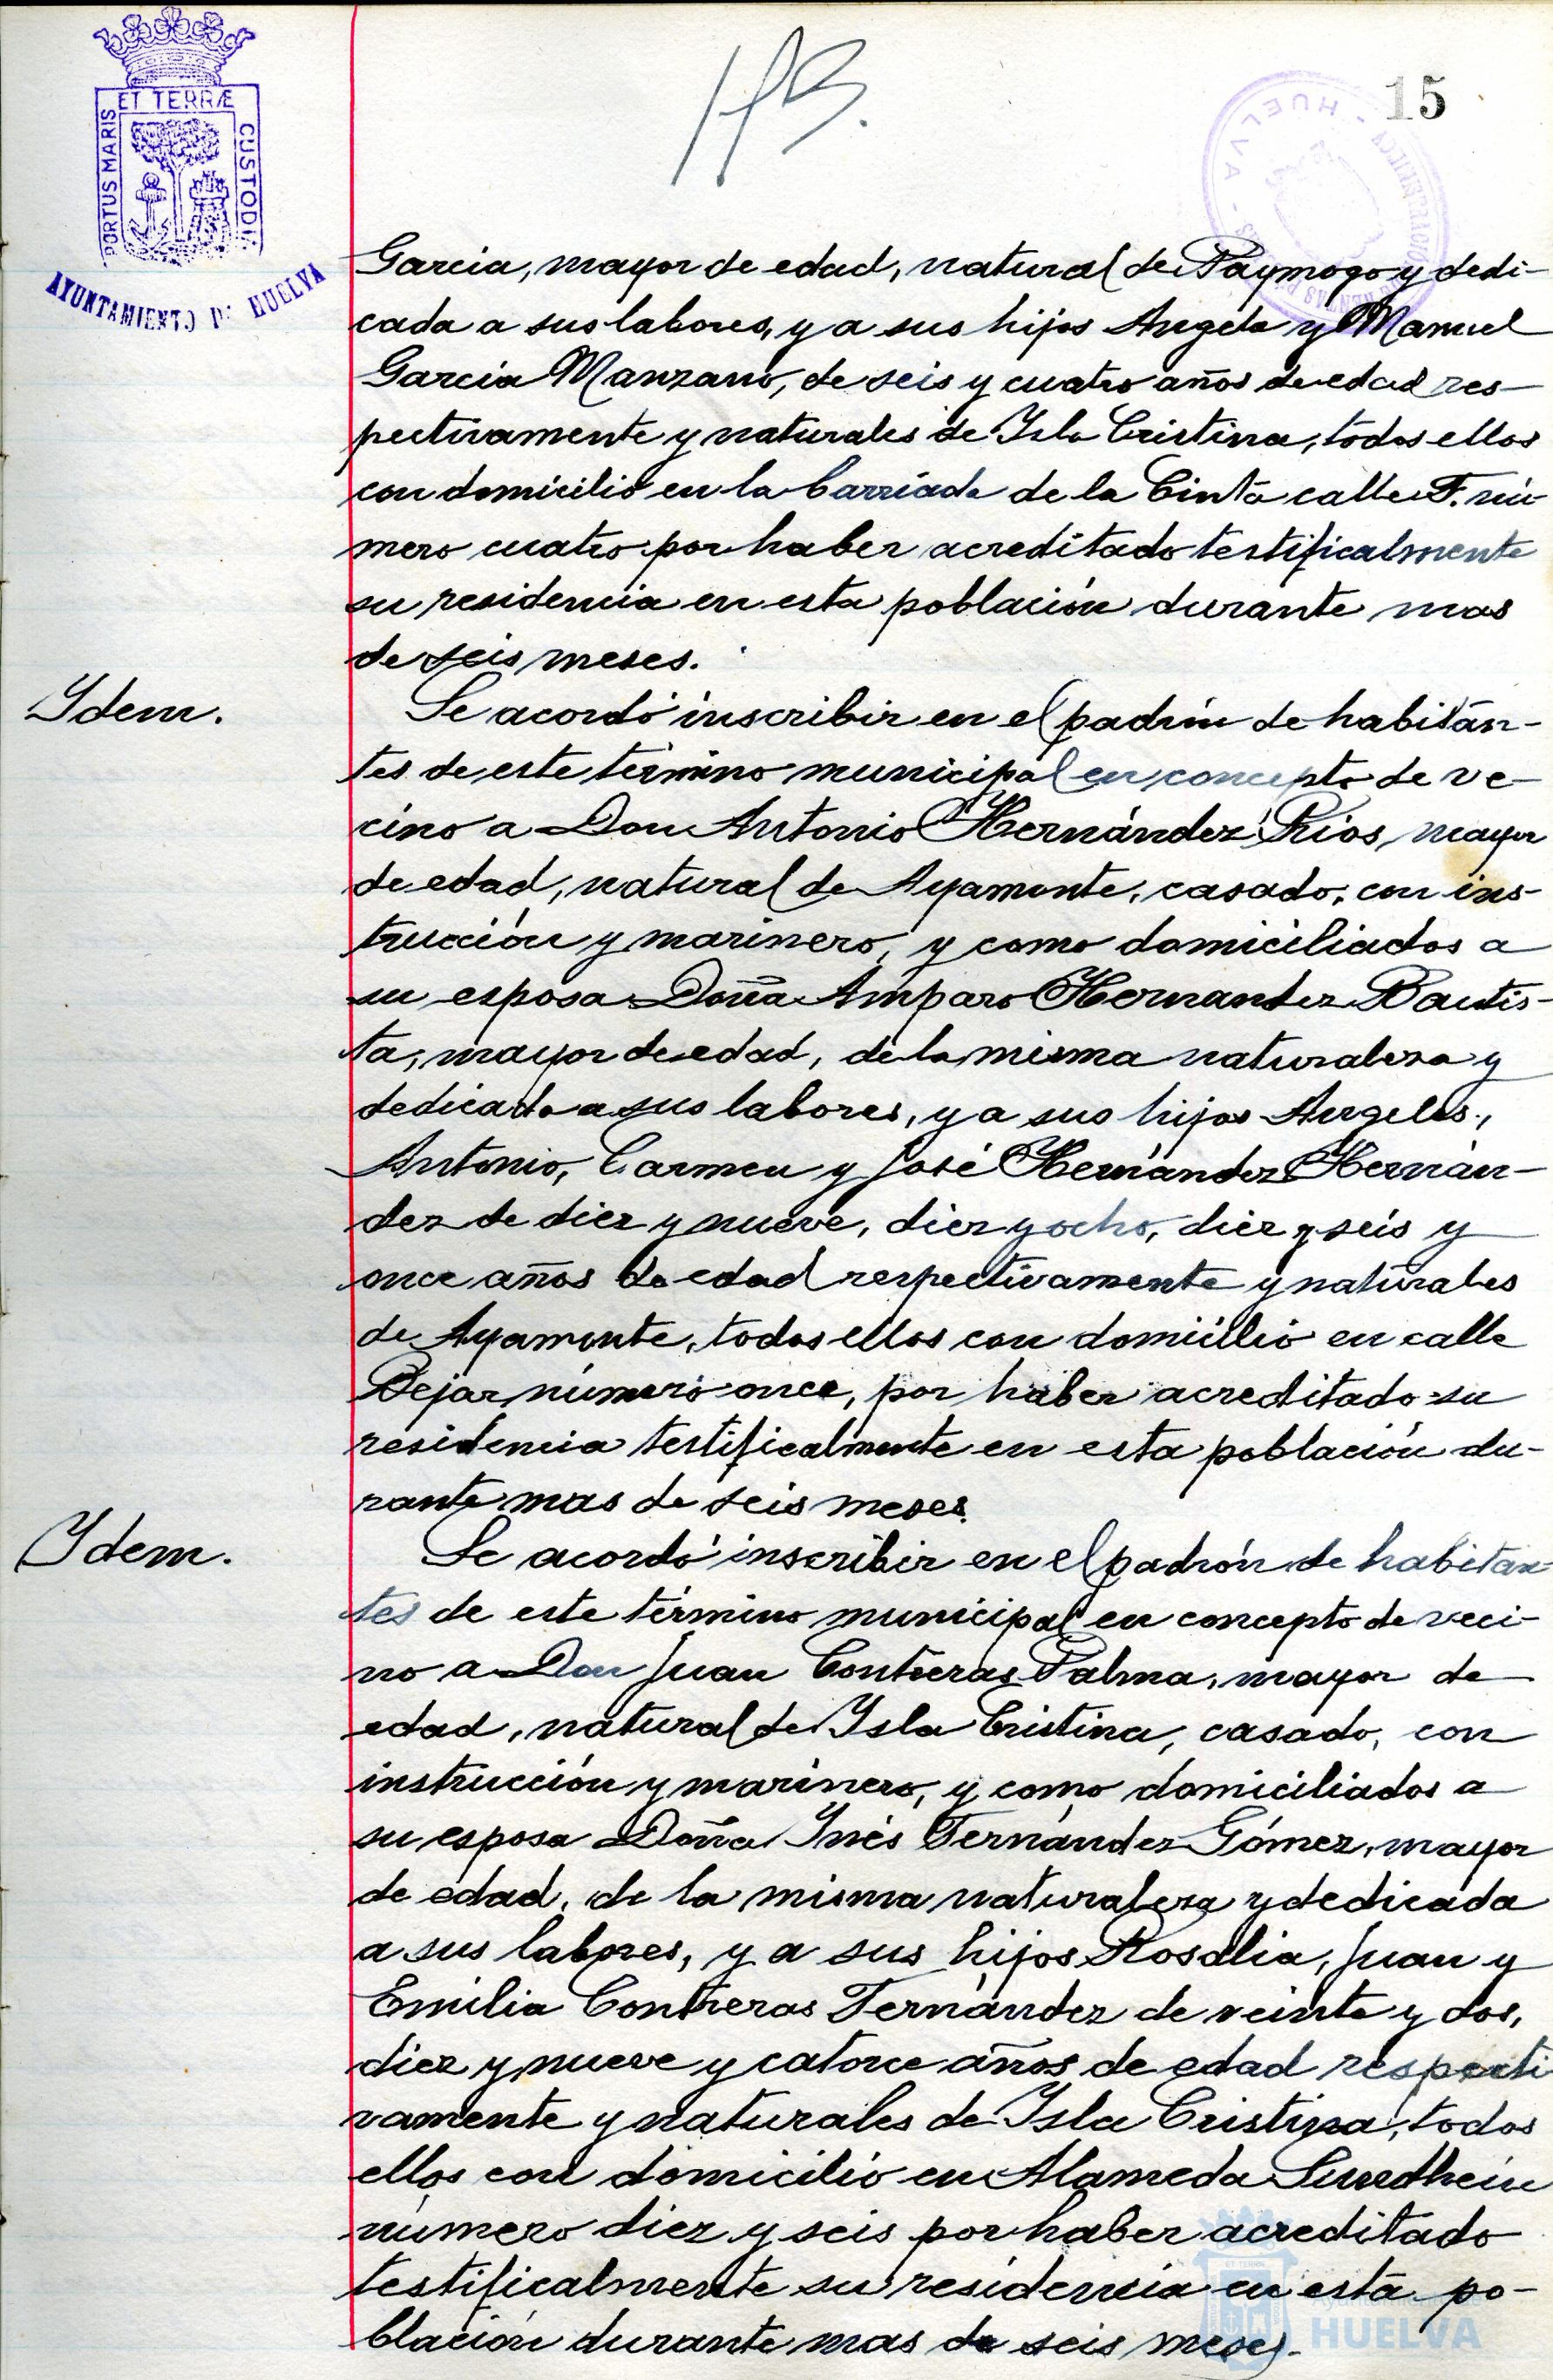 HB.
15
ET TERRÆ
PORTUS MARIS
CUSTODIA
AYUNTAMIENTO DE HUELVA
HUELVA
Garcia, mayor de edad, natural de Paymogo y dedi-
cada a sus labores, y a sus hijos Angela y Manuel
García Manzano, de seis y cuatro años de edad res-
pectivamente y naturales de Isla Cristina, todos ellos
con domicilio en la barriada de la Cinta calle F. nú-
mero cuatro por haber acreditado testificalmente
su residencia en esta población durante mas
de seis meses.
Ydem.
Se acordó inscribir en el padrón de habitan-
tes de este término municipal en concepto de ve-
cino a Don Antonio Hernández Rios, mayor
de edad, natural de Ayamonte, casado, con ins-
trucción y marinero, y como domiciliados a
su esposa Doña Amparo Hernandez Bautis-
ta, mayor de edad, de la misma naturaleza y
dedicada a sus labores, y a sus hijos Angeles,
Antonio, Carmen y José Hernández Hernán-
dez de diez y nueve, diez y ocho, diez y seis y
once años de edad respectivamente y naturales
de Ayamonte, todos ellos con domicilio en calle
Bejar número once, por haber acreditado su
residencia testificalmente en esta población du-
rante mas de seis meses.
Ydem.
Se acordó inscribir en el padrón de habitan-
tes de este término municipal en concepto de veci-
no a Don Juan Contreras Palma, mayor de
edad, natural de Isla Cristina, casado, con
instrucción y marinero, y como domiciliados a
su esposa Doña Inés Fernández Gómez, mayor
de edad, de la misma naturaleza y dedicada
a sus labores, y a sus hijos Rosalia, Juan y
Emilia Contreras Fernández de veinte y dos,
diez y nueve y catorce años de edad respecti-
vamente y naturales de Isla Cristina, todos
ellos con domicilio en Alameda Sundhein
número diez y seis por haber acreditado
testificalmente su residencia en esta po-
blación durante mas de seis meses.
HUELVA